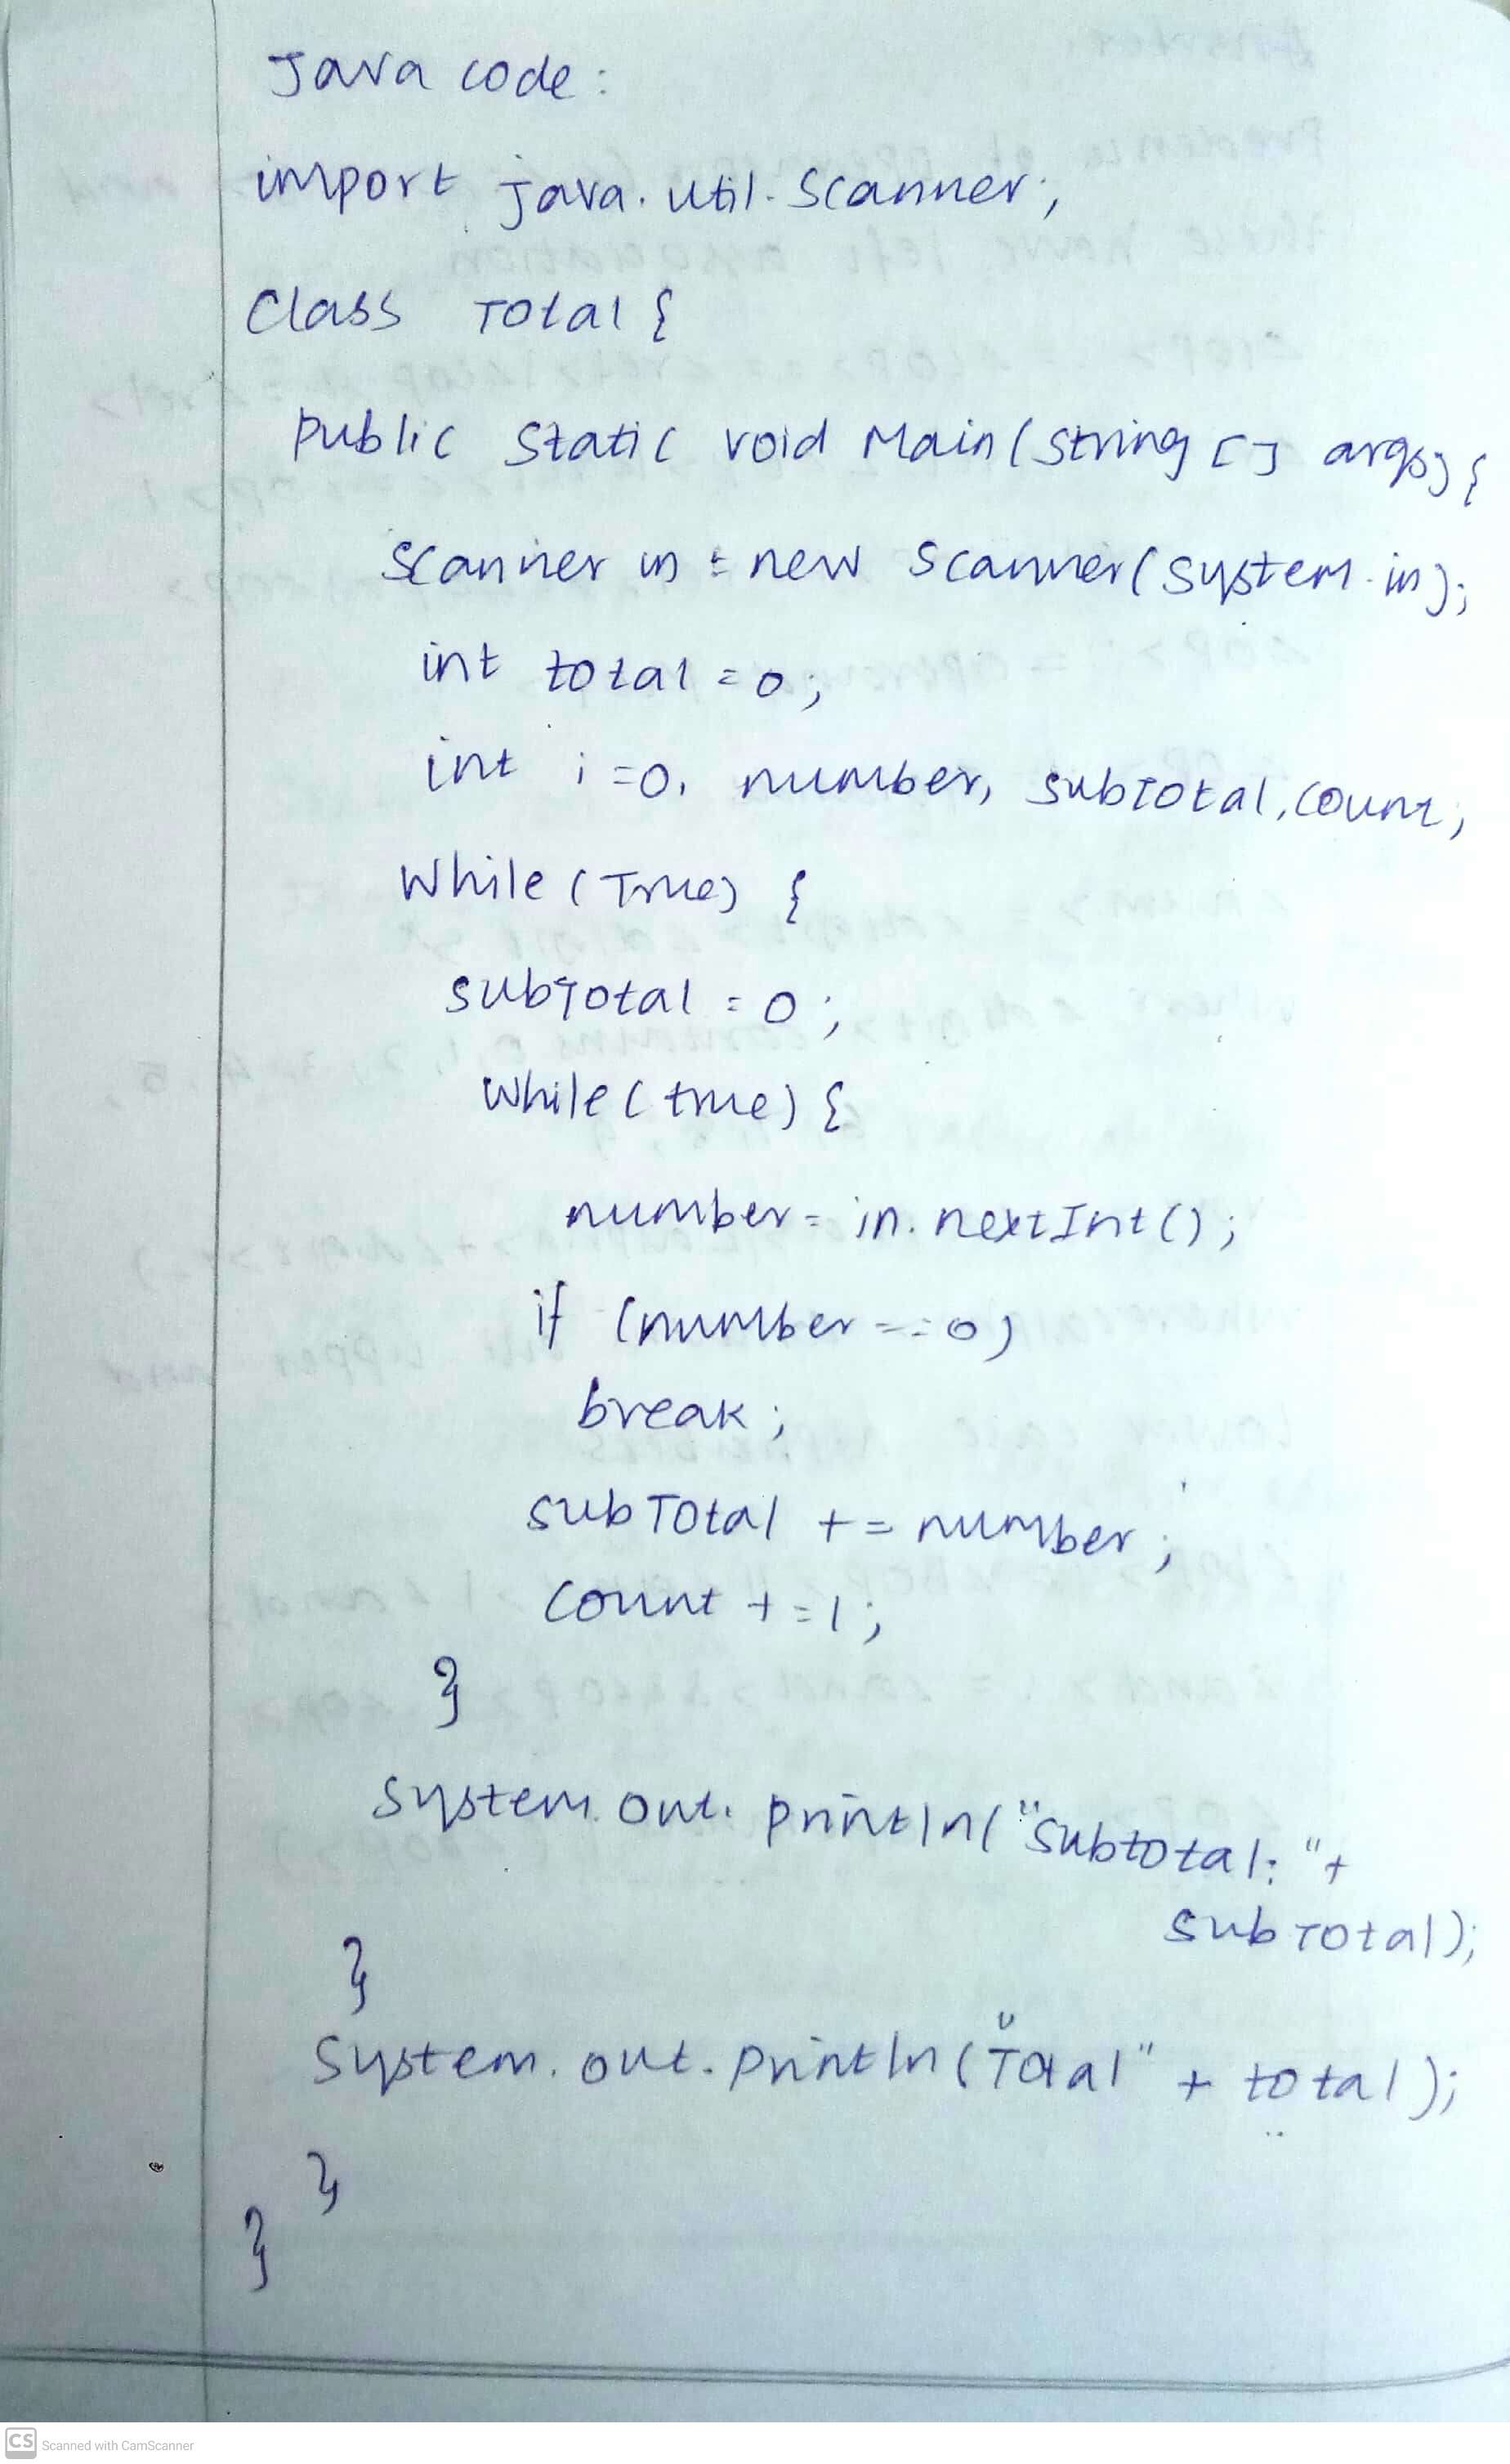 Java code:
import java.util.Scanner;
Class Total {
public static void Main(String [] args) {
Scanner in = new Scanner(System.in);
int total = 0;
int i=0, number, subTotal, count;
While (True) {
subTotal = 0;
While (true) {
number = in.nextInt();
if (number == 0)
break;
subTotal += number;
Count += 1;
}
System.out.println("Subtotal: "+
subTotal);
}
System.out.println("Total" + total);
}
}
CS Scanned with CamScanner